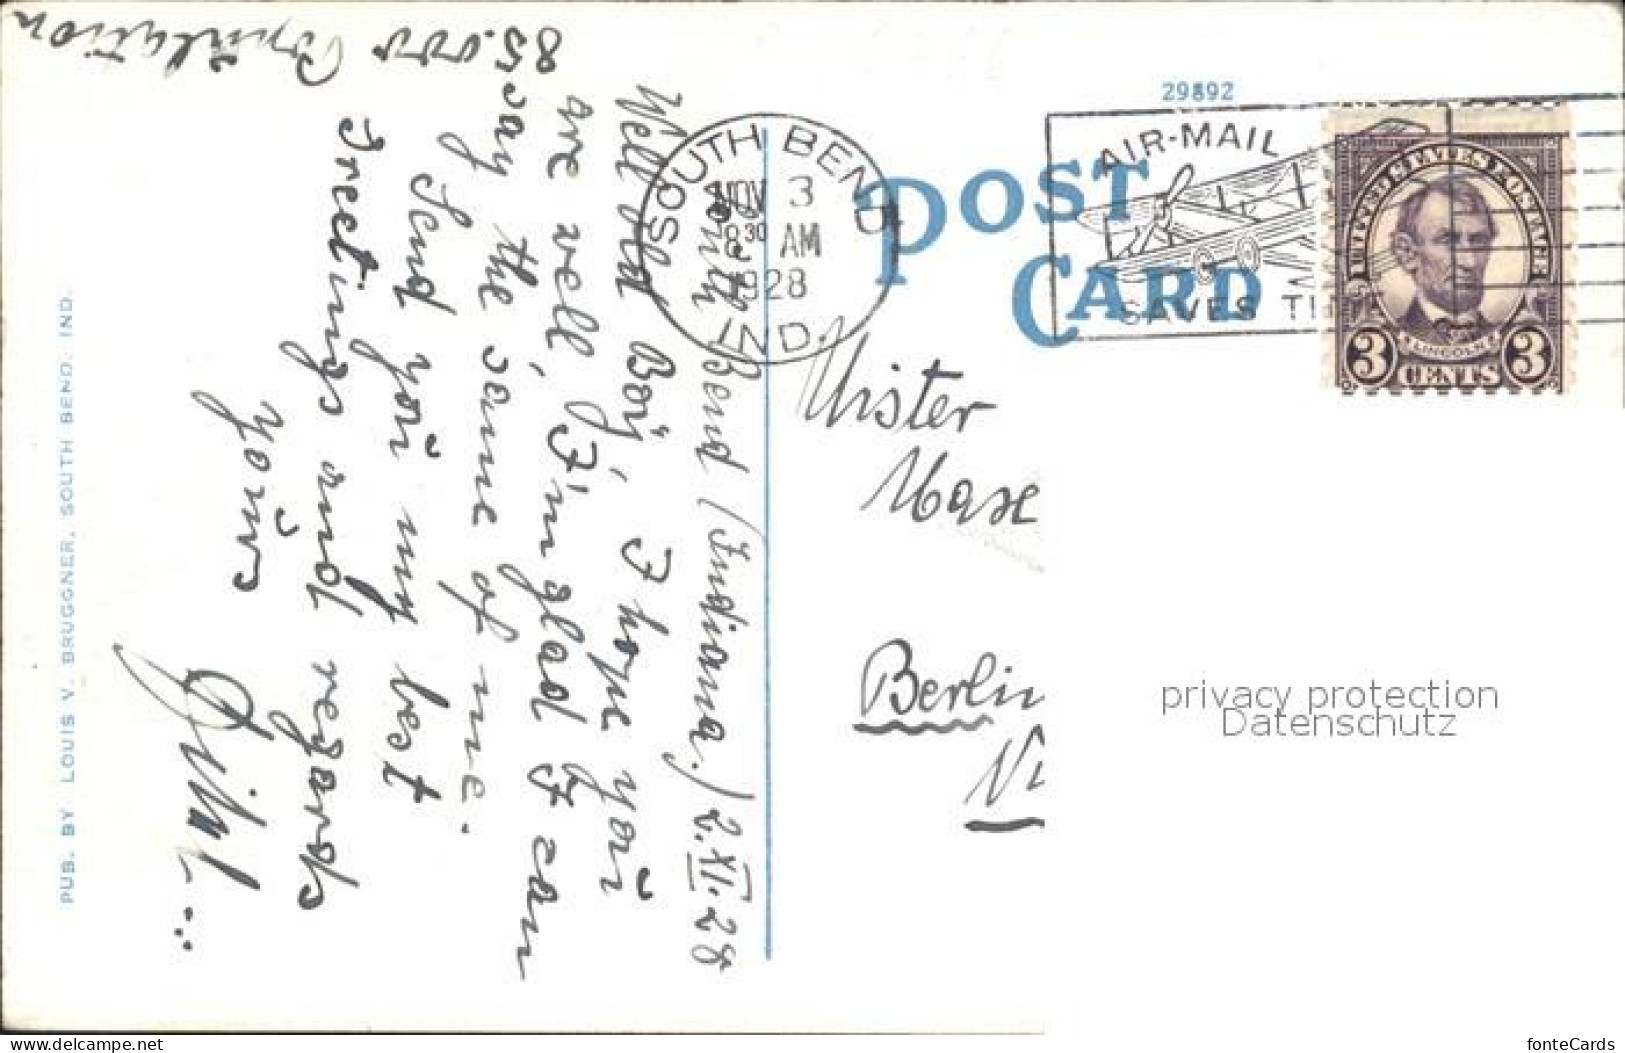 85.000 Population
South Bend (Indiana.) 2.XI.28
Well old Boÿ, I hope yoŭ
are well, I'm glad I can
say the same of me.
Send yoŭ my best
Greetings and regards
yoŭrs
PUB. BY LOUIS V. BRUGGNER, SOUTH BEND. IND.
29892
POST
CARD
SOUTH BEND
NOV 3
8 30 AM
1928
IND.
AIR-MAIL
SAVES TI
UNITED STATES POSTAGE
LINCOLN
3 CENTS 3
Mister
Max
Berlin
privacy protection
Datenschutz
www.delcampe.net
fonteCards